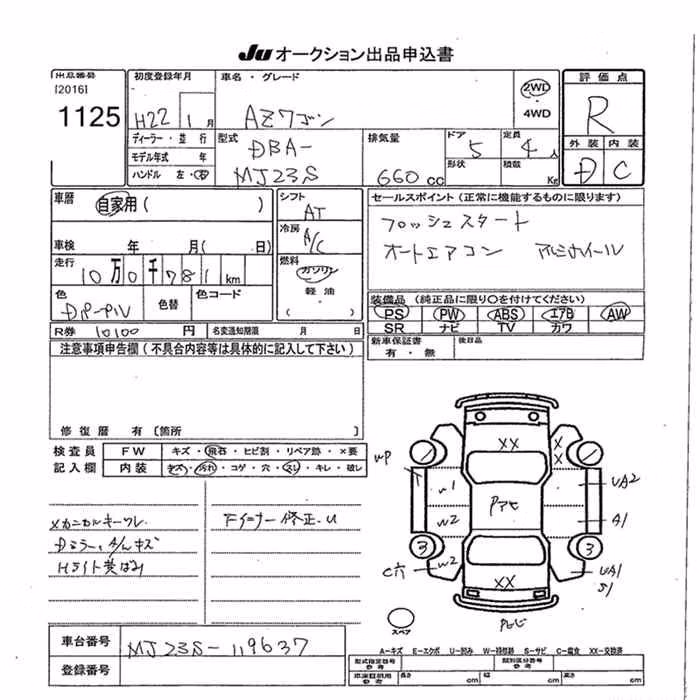 JU オークション出品申込書
出品番号 初度登録年月 車名・グレード 評価点
[2016]
1125 H22 1月 AZワゴン 2WD ・ 4WD R
ディーラー・並行 型式 排気量 ドア 定員 外装 内装
モデル年式 年 DBA- 5 4人 D C
ハンドル 左・右 MJ23S 660cc 形状 積載 Kg
車歴 自家用( ) シフト AT セールスポイント(正常に機能するものに限ります)
冷房 A/C プッシュスタート
車検 年 月( 日) オートエアコン アルミホイール
走行 燃料
10万0千781km ガソリン
色 色替 色コード 軽油
DパープルV ( ) 装備品(純正品に限り〇を付けてください)
PS PW ABS エアB AW
R券 10100円 名変通知期限 月 日 SR ナビ TV カワ
注意事項申告欄(不具合内容等は具体的に記入して下さい) 新車保証書 後日品
有・無
修復歴 有〔箇所 〕
検査員 FW キズ・飛石・ヒビ割・リペア跡・×要
記入欄 内装 キズ・汚れ・コゲ・穴・スレ・キレ・破レ
メカニカルキーワレ Fインナー修正.U
Dミラー、A/Lキズ
Hライト黄ばみ
XX XX
WP 3
W1 Pアヒ UA2
W2 A1
3 3
C穴 W2 UA1
XX S1
スペア
A-キズ E-エクボ U-凹み W-補修跡 S-サビ C-腐食 XX-交換済
車台番号 MJ23S-119637
型式指定番号 参考 類別区分番号 参考
登録番号 車庫証明用 参考 長さ cm 幅 cm 高さ cm